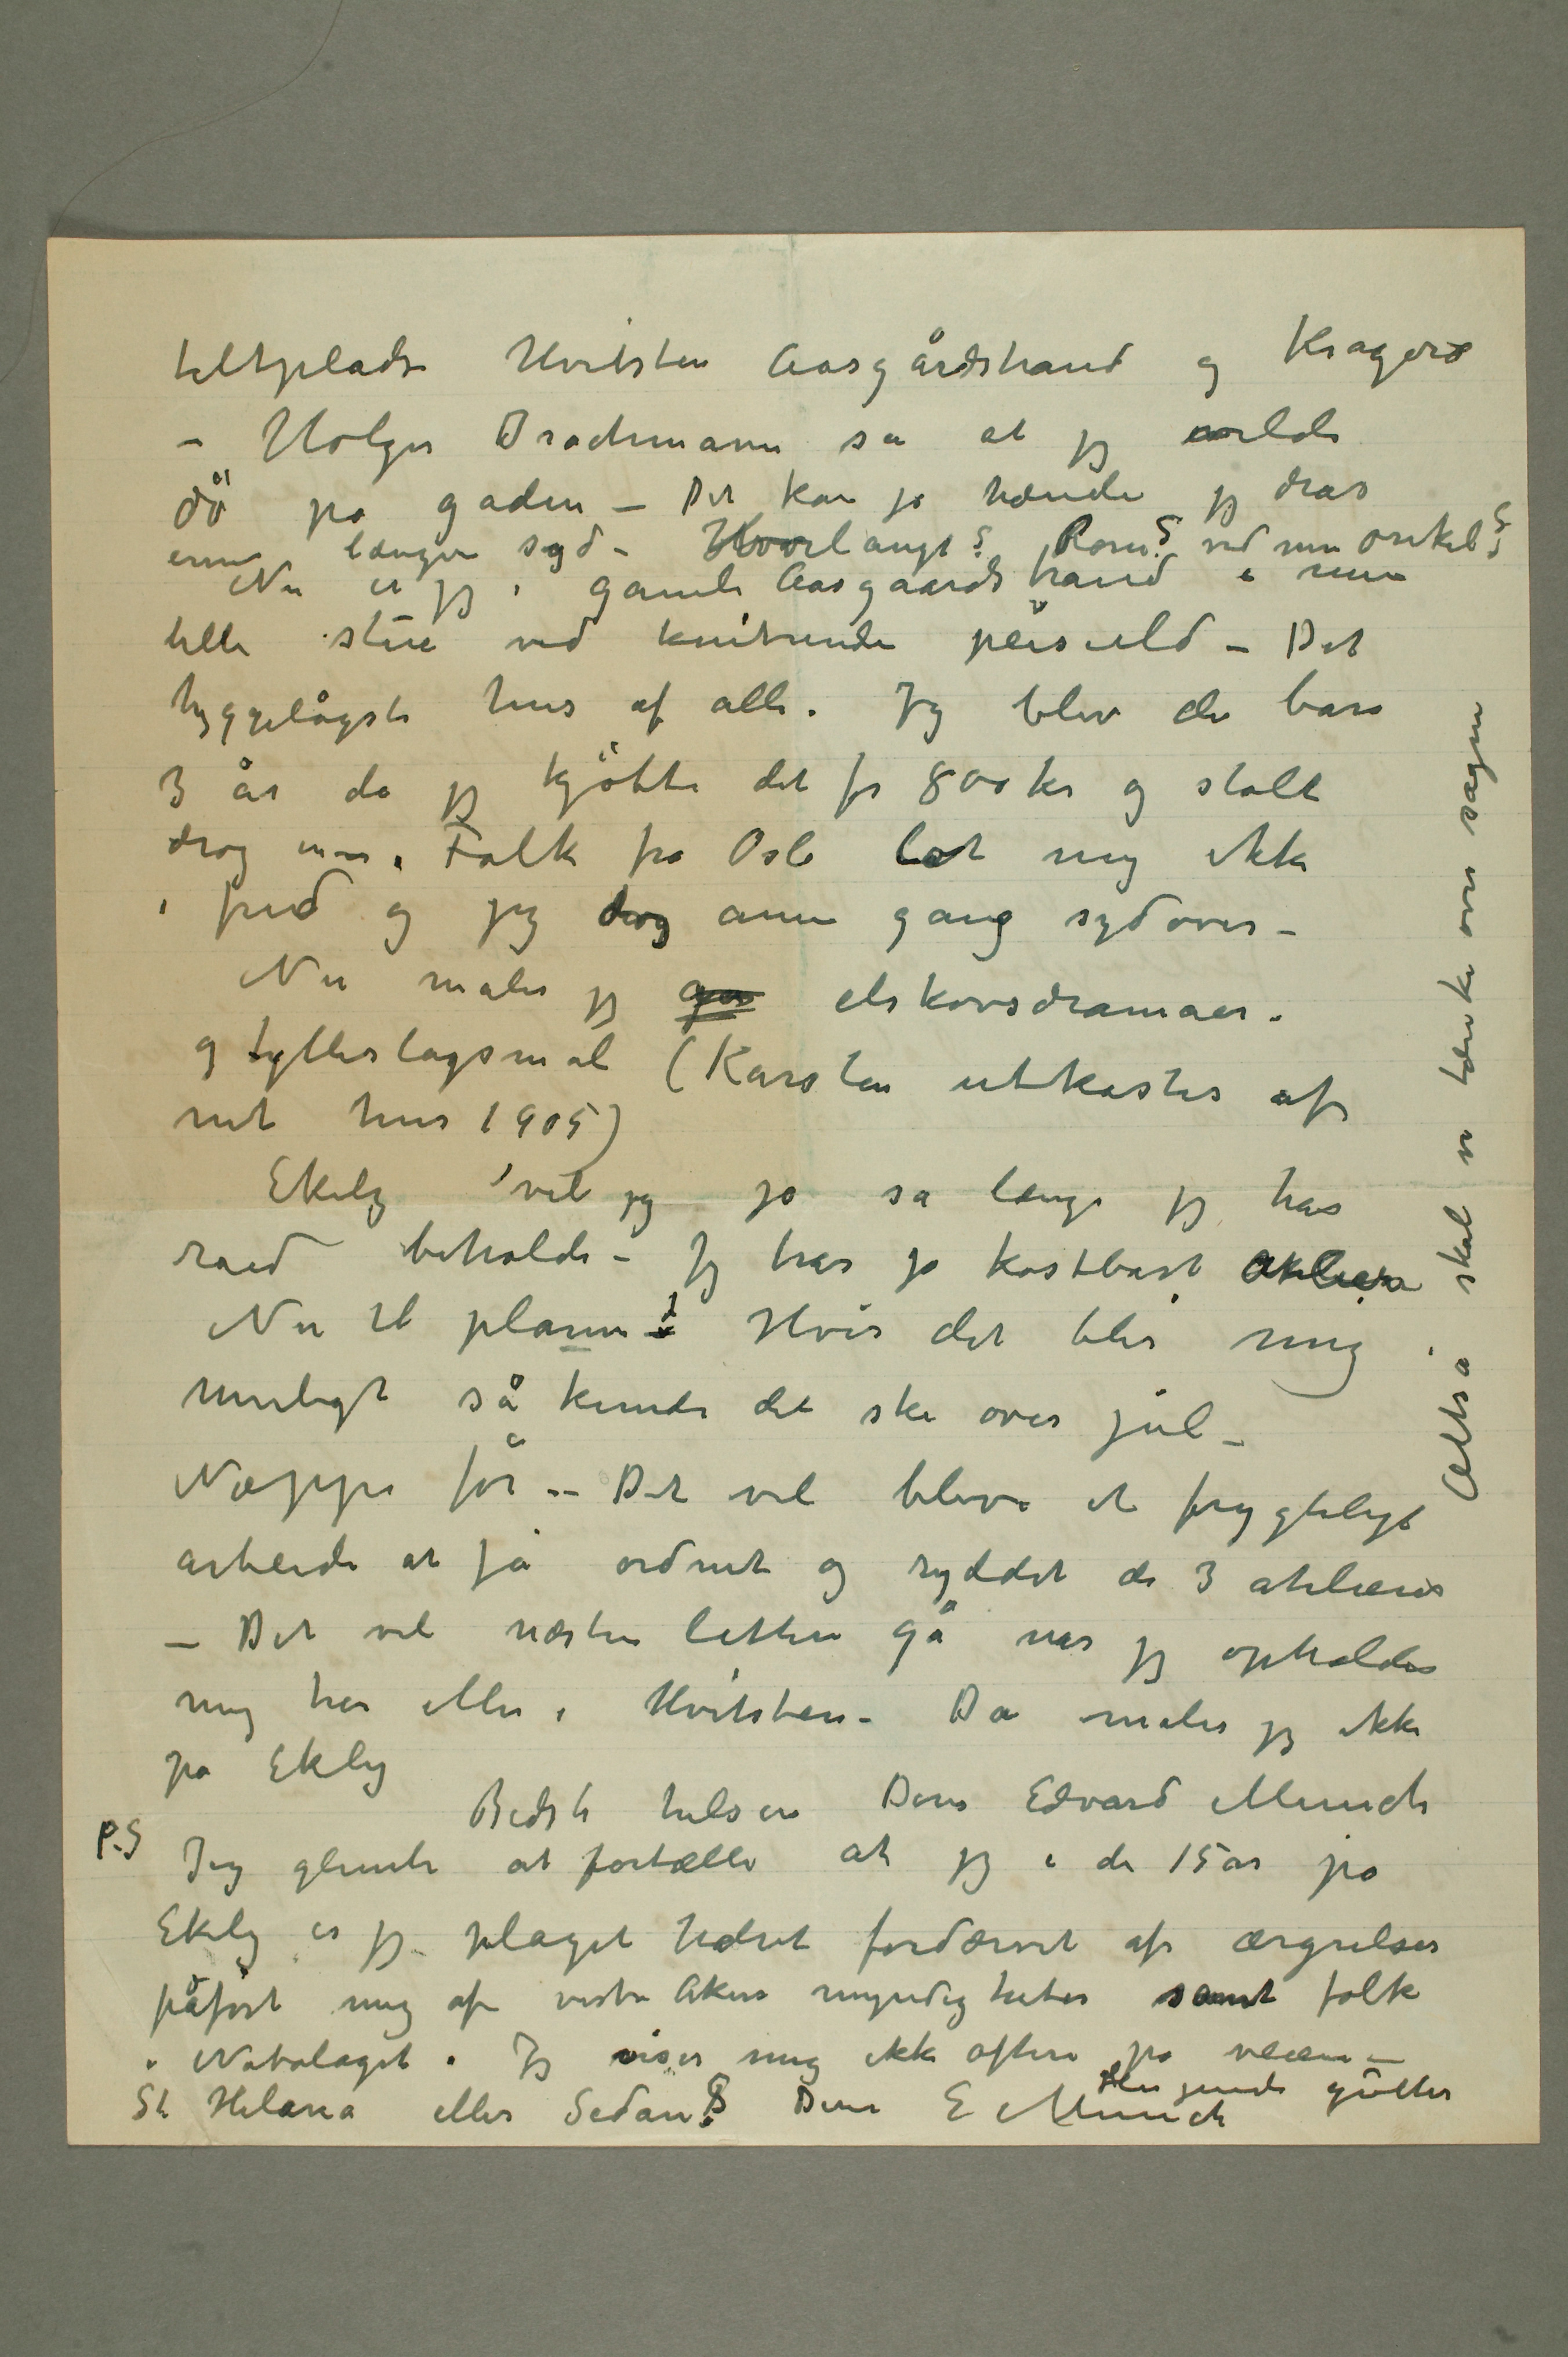 teltpladse Hvitsten Aasgårdstrand og Kragerø
– Holger Drachmann sa at jeg vilde
dö på gaden – Det kan jo hænde jeg drar
ennu længere syd – Hvorlangt? Rom? ved min onkel?
Nu er jeg i gamle Aasgaardstrand i min
lille stue ved knitrende peisild – Det
hyggeligste hus af alle. Jeg blev der bare
3 år da jeg kjöbte det for 800 kr og stolt
drog inn. Folk fra Oslo lot mig ikke
i fred og jeg drog anne gang sydover –
Nu maler jeg elskovsdramaer.
og fylleslagsmål (Karsten utkastes af
mit hus 1905)
Ekely vil jeg jo så længe jeg har
raad beholde – Jeg har jo kostbart atelier
Nu til planen! Hvis det blir mig
muligt så kunde det ske over jul –
Neppe för – Det vil blive et frygteligt
arbeide at få ordnet og ryddet de 3 atelierer
– Det vil næsten lettere gå når jeg opholder
mig her eller i Hvitsten – Da maler jeg ikke
på Ekely
Bedste hilsen Deres Edvard Munch
P.S Jeg glemte at fortælle at jeg i de 15 år på
Ekely er jeg plaget halvt fordærvet af ærgrelser
påfört mig af vestre Akers myndigheter samt folk
i Nabolaget. Jeg viser mig ikke oftere på veien –
gutter
St Helena eller Sedan? Deres E Munch
Altså skal vi tænke over sagen